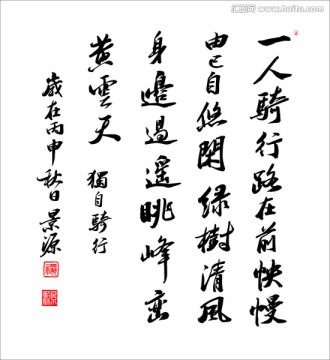 一人騎行路在前快慢
由已自悠閑綠樹清風
身邊過遥眺峰巒
黄雲天
獨自騎行
歲在丙申秋日景源
微图网 www.buitu.com